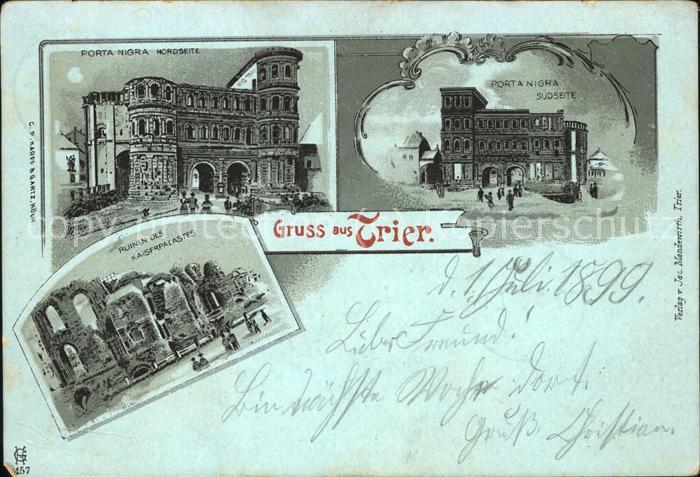 PORTA NIGRA NORDSEITE
PORTA NIGRA
SÜDSEITE
RUINEN DES
KAISERPALASTES
Gruss aus Trier.
d. 1. Juli 1899.
Lieber Freund!
Bin nächste Woche dort.
Gruß Christian.
Verlag v. Jac. Mandewirth, Trier.
457